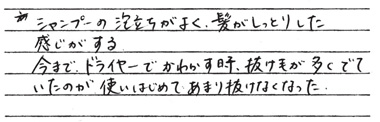 シャンプーの泡立ちがよく、髪がしっとりした
感じがする
今まで、ドライヤーでかわかす時、抜け毛が多くでて
いたのが使いはじめてあまり抜けなくなった。